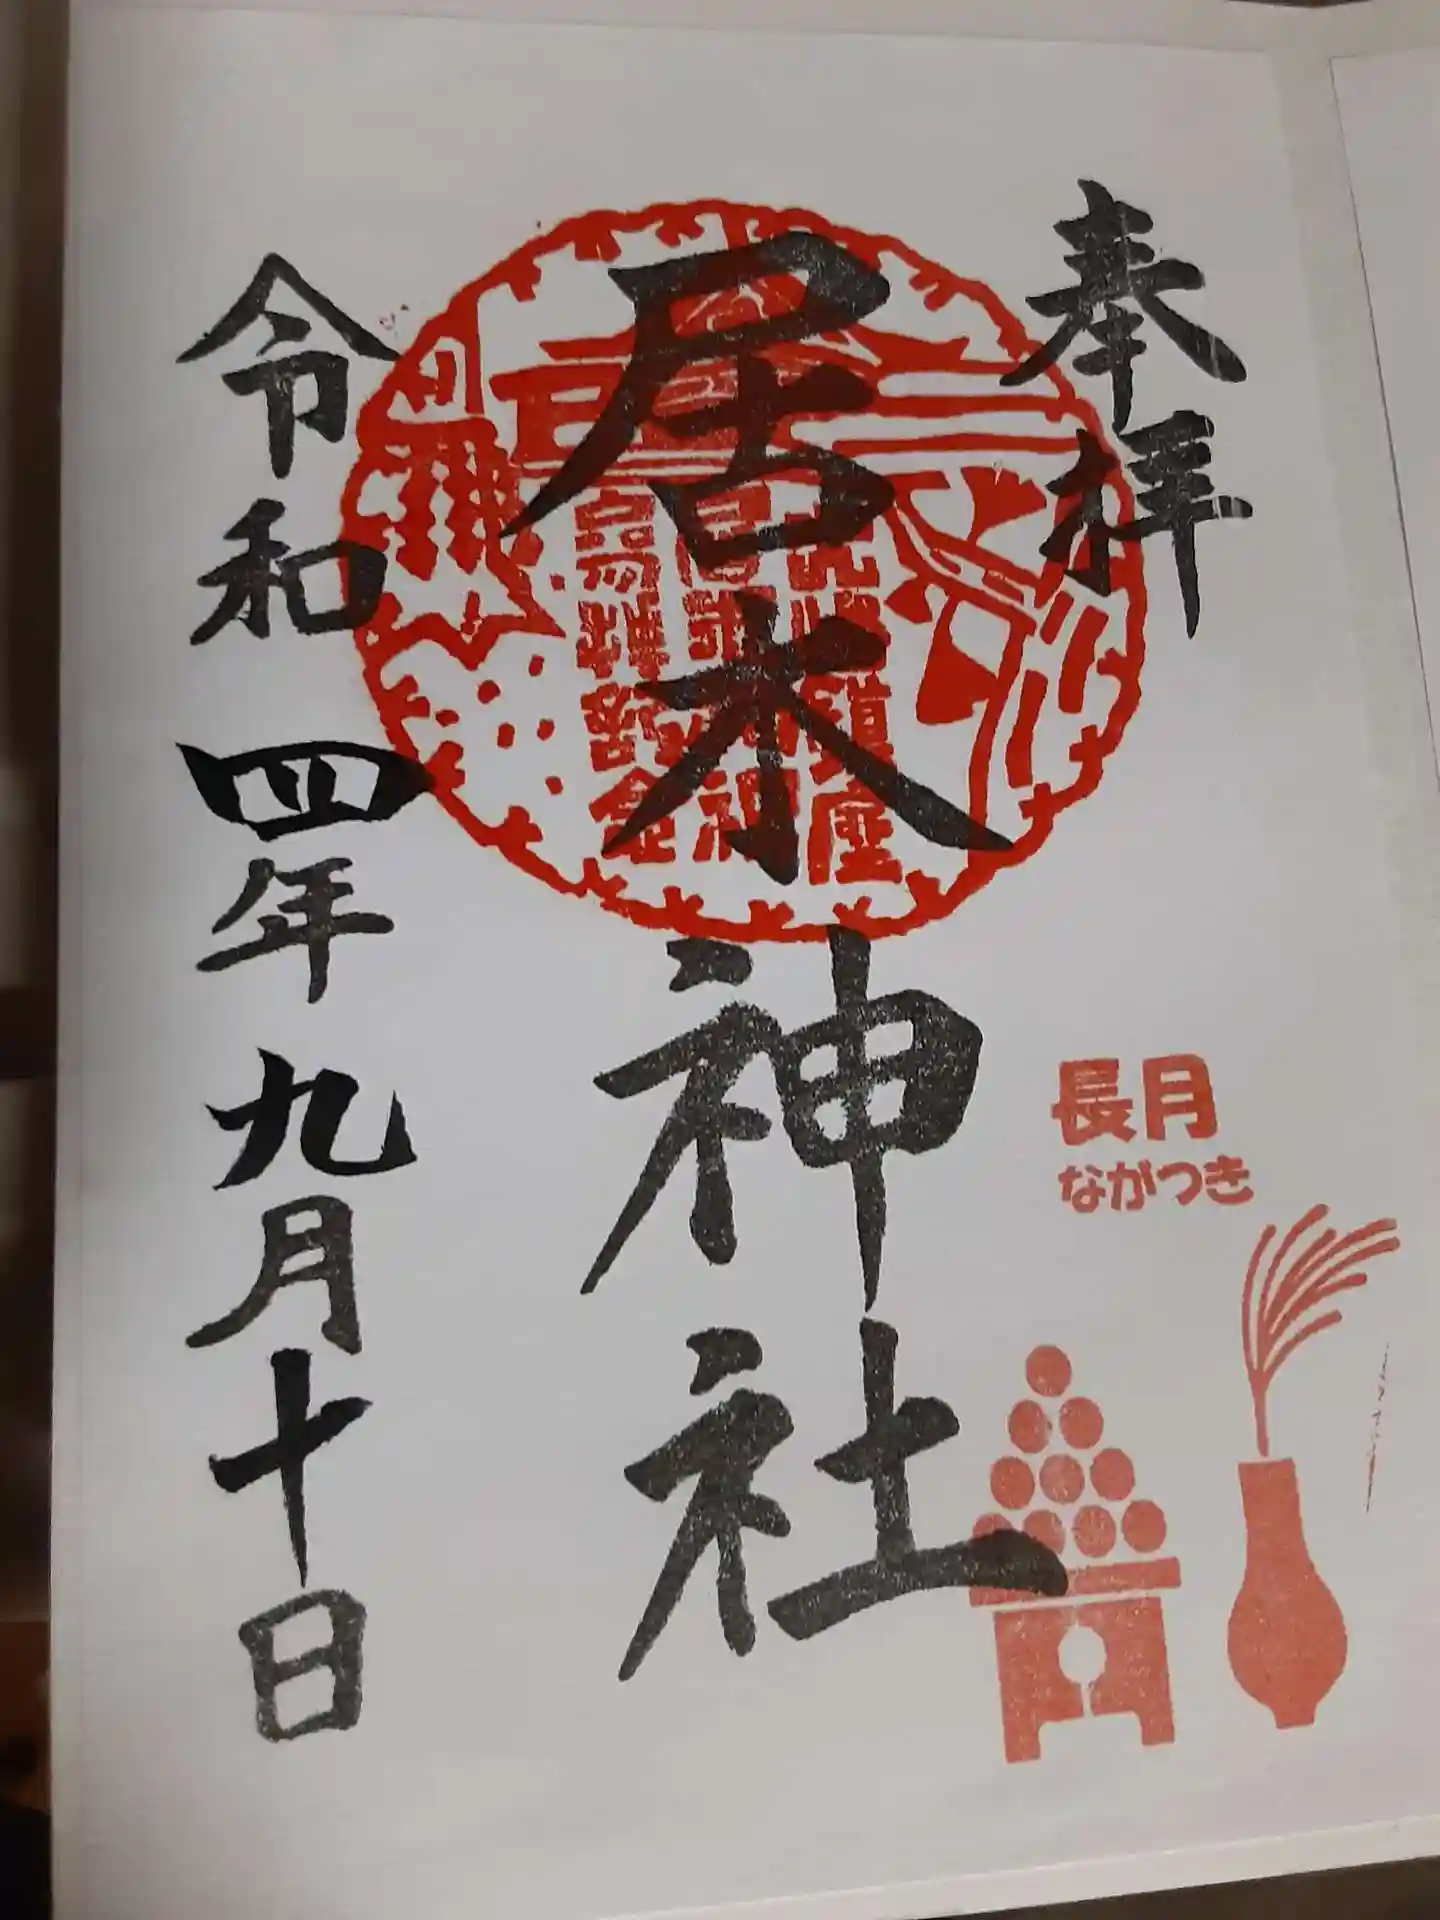 奉拝
居木神社
令和四年九月十日
長月
ながつき